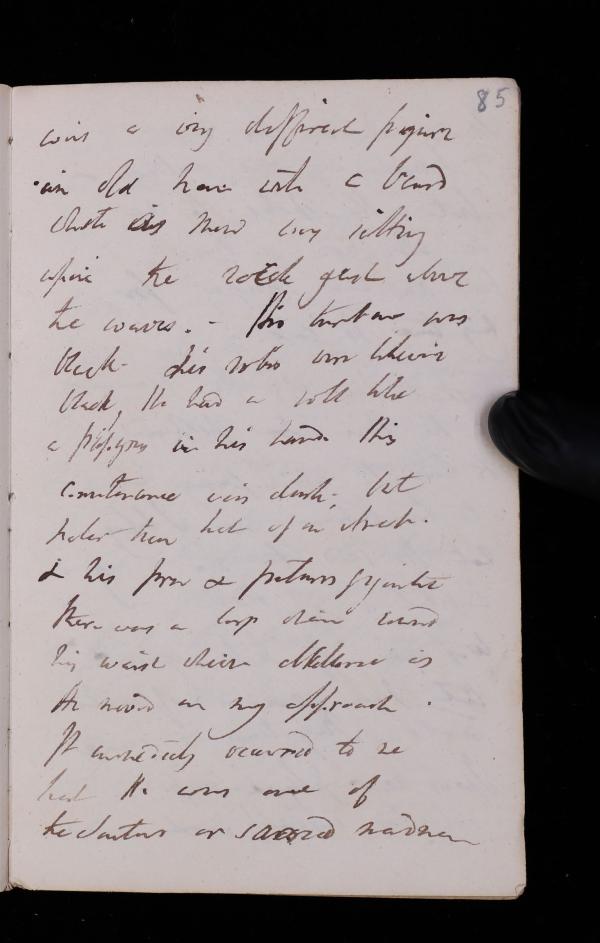 85
was a very different figure
an old man with a beard
white as snow was sitting
upon the rock just above
the waves. - His turban was
black - his robes were likewise
black, He had a roll like
a papyrus in his hand. His
countenance was dark, but
paler than that of an Arab.
& his form & features gigantic
There was a large chain round
his waist which as
He moved on my approach.
It immediately occurred to me
that He was one of
the santons or sacred madmen